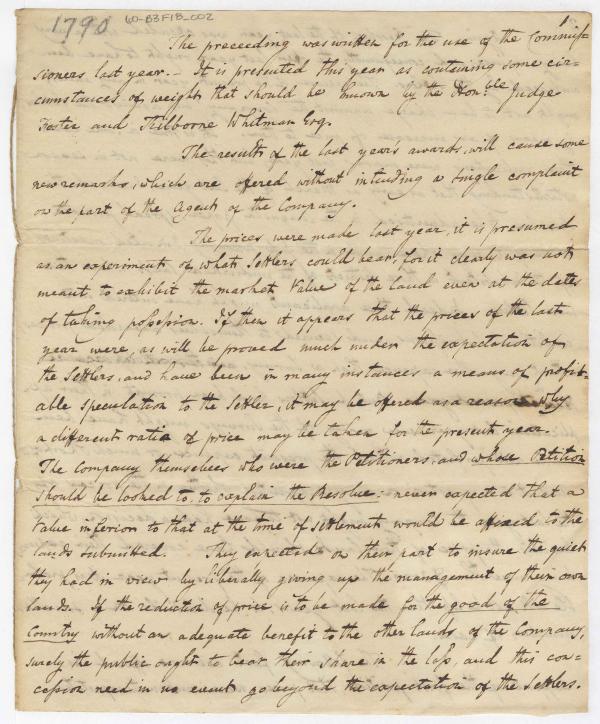 1790
60-B3F18_002
1
The preceeding was written for the use of the Commis-
sioners last year. – It is presented this year as containing some cir=
cumstances of weight that should be known by the Honble Judge
Foster and Kilborne Whitman Esq.
The results of the last year's awards, will cause some
new remarks, which are offered without intending a single complaint
on the part of the Agent of the Company.
The prices were made last year, it is presumed
as an experiment of what Settlers could bear, for it clearly was not
meant to exhibit the market value of the land even at the dates
of taking possession. If then it appears that the prices of the last
year were, as will be proved much under the expectation of
the Settlers, and have been in many instances a means of profit-
able speculation to the Settler, it may be offered as a reason why
a different ratio of price may be taken for the present year.
The Company themselves who were the Petitioners, and whose Petition
should be looked to, to explain the Resolve: never expected that a
value inferior to that at the time of settlement would be affixed to the
lands submitted. They expected on their part to insure the quiet
they had in view by liberally giving up the management of their own
lands. If the reduction of price is to be made for the good of the
Country without an adequate benefit to the other lands of the Company,
surely the public ought to bear their share in the loss, and this con-
cession need in no event go beyond the expectation of the Settlers.